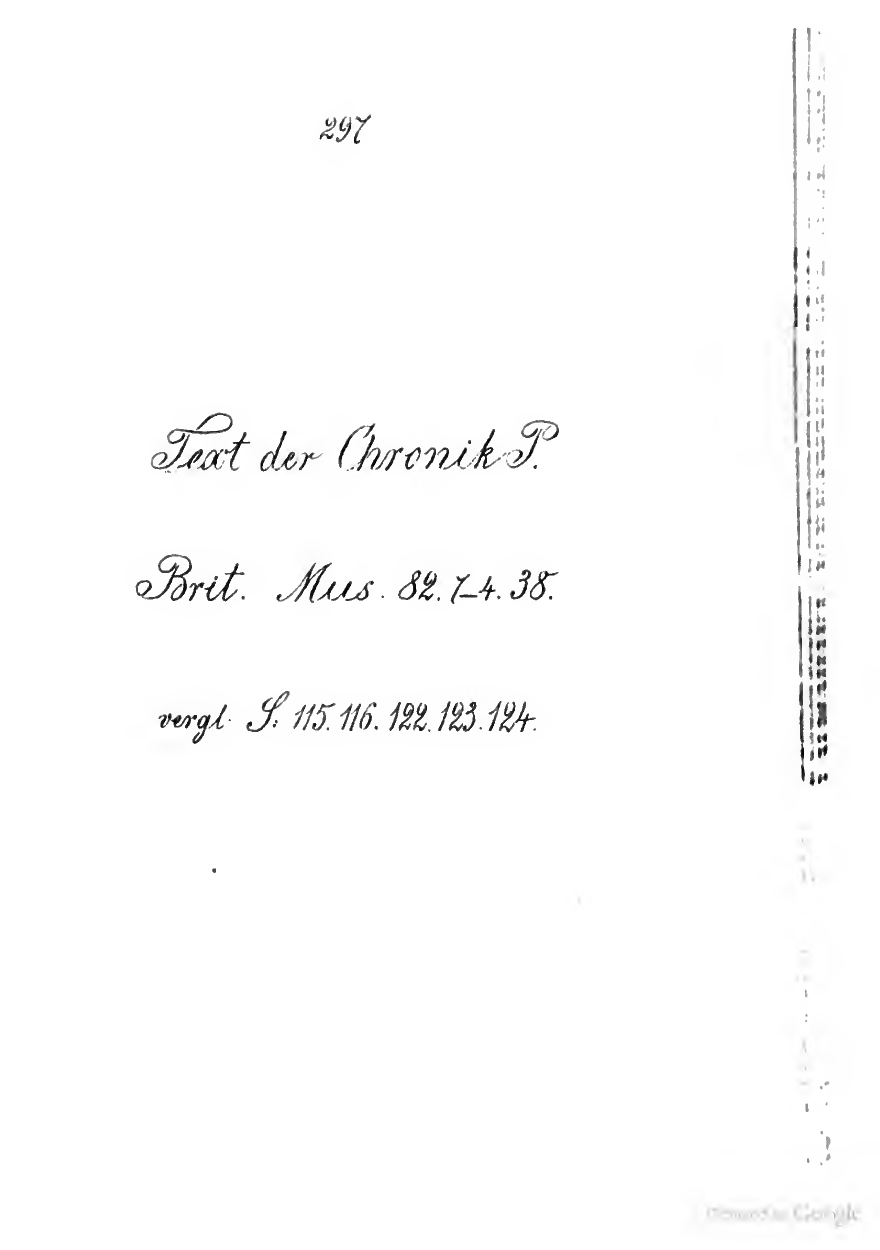 297
Text der Chronik P.
Brit. Mus. 82. 7-4. 38.
vergl. S. 115. 116. 122. 123. 124.
Digitized by Google